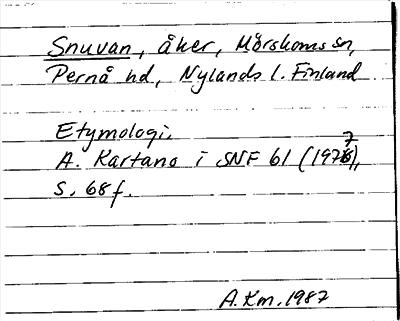 Snuvan, åker, Mörskoms sn,
Pernå hd, Nylands l. Finland
Etymologi.
A. Kartano i SNF 61 (1977),
s. 68 f.
A.Km. 1987